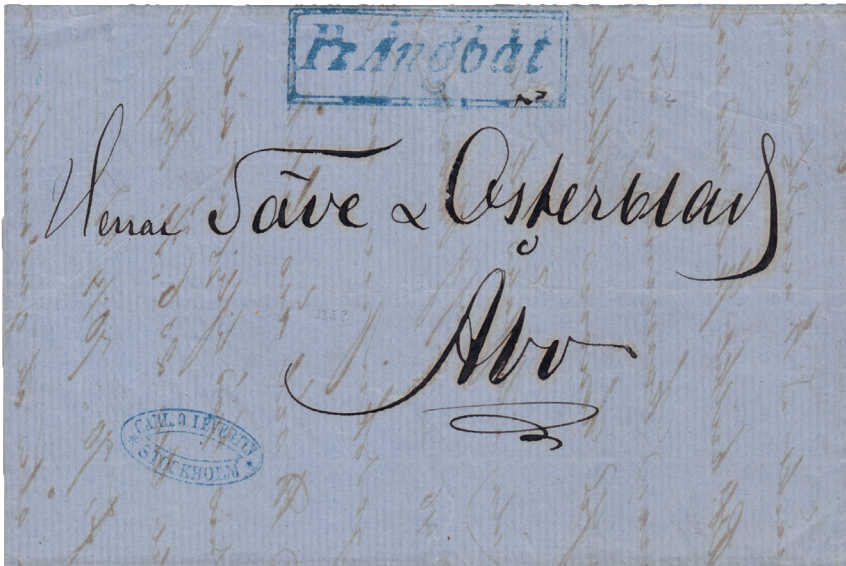 Pr Ångbåt
Herrar Säve & Österblad
Åbo
CARL G LEVERTIN
STOCKHOLM